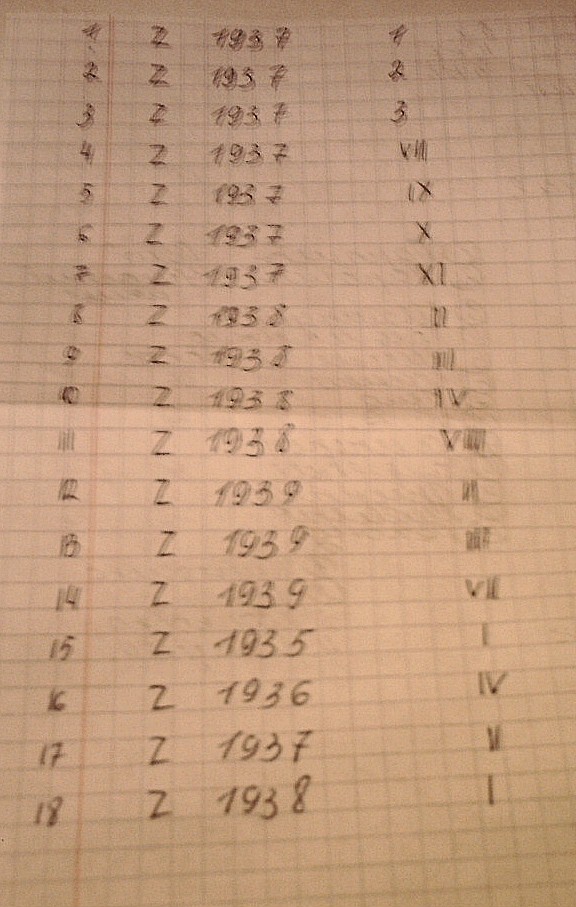 1 Z 1937 1
2 Z 1937 2
3 Z 1937 3
4 Z 1937 VIII
5 Z 1937 IX
6 Z 1937 X
7 Z 1937 XI
8 Z 1938 II
9 Z 1938 III
10 Z 1938 IV
11 Z 1938
12 Z 1939 III
13 Z 1939
14 Z 1939 VII
15 Z 1935 I
16 Z 1936 IV
17 Z 1937 II
18 Z 1938 I